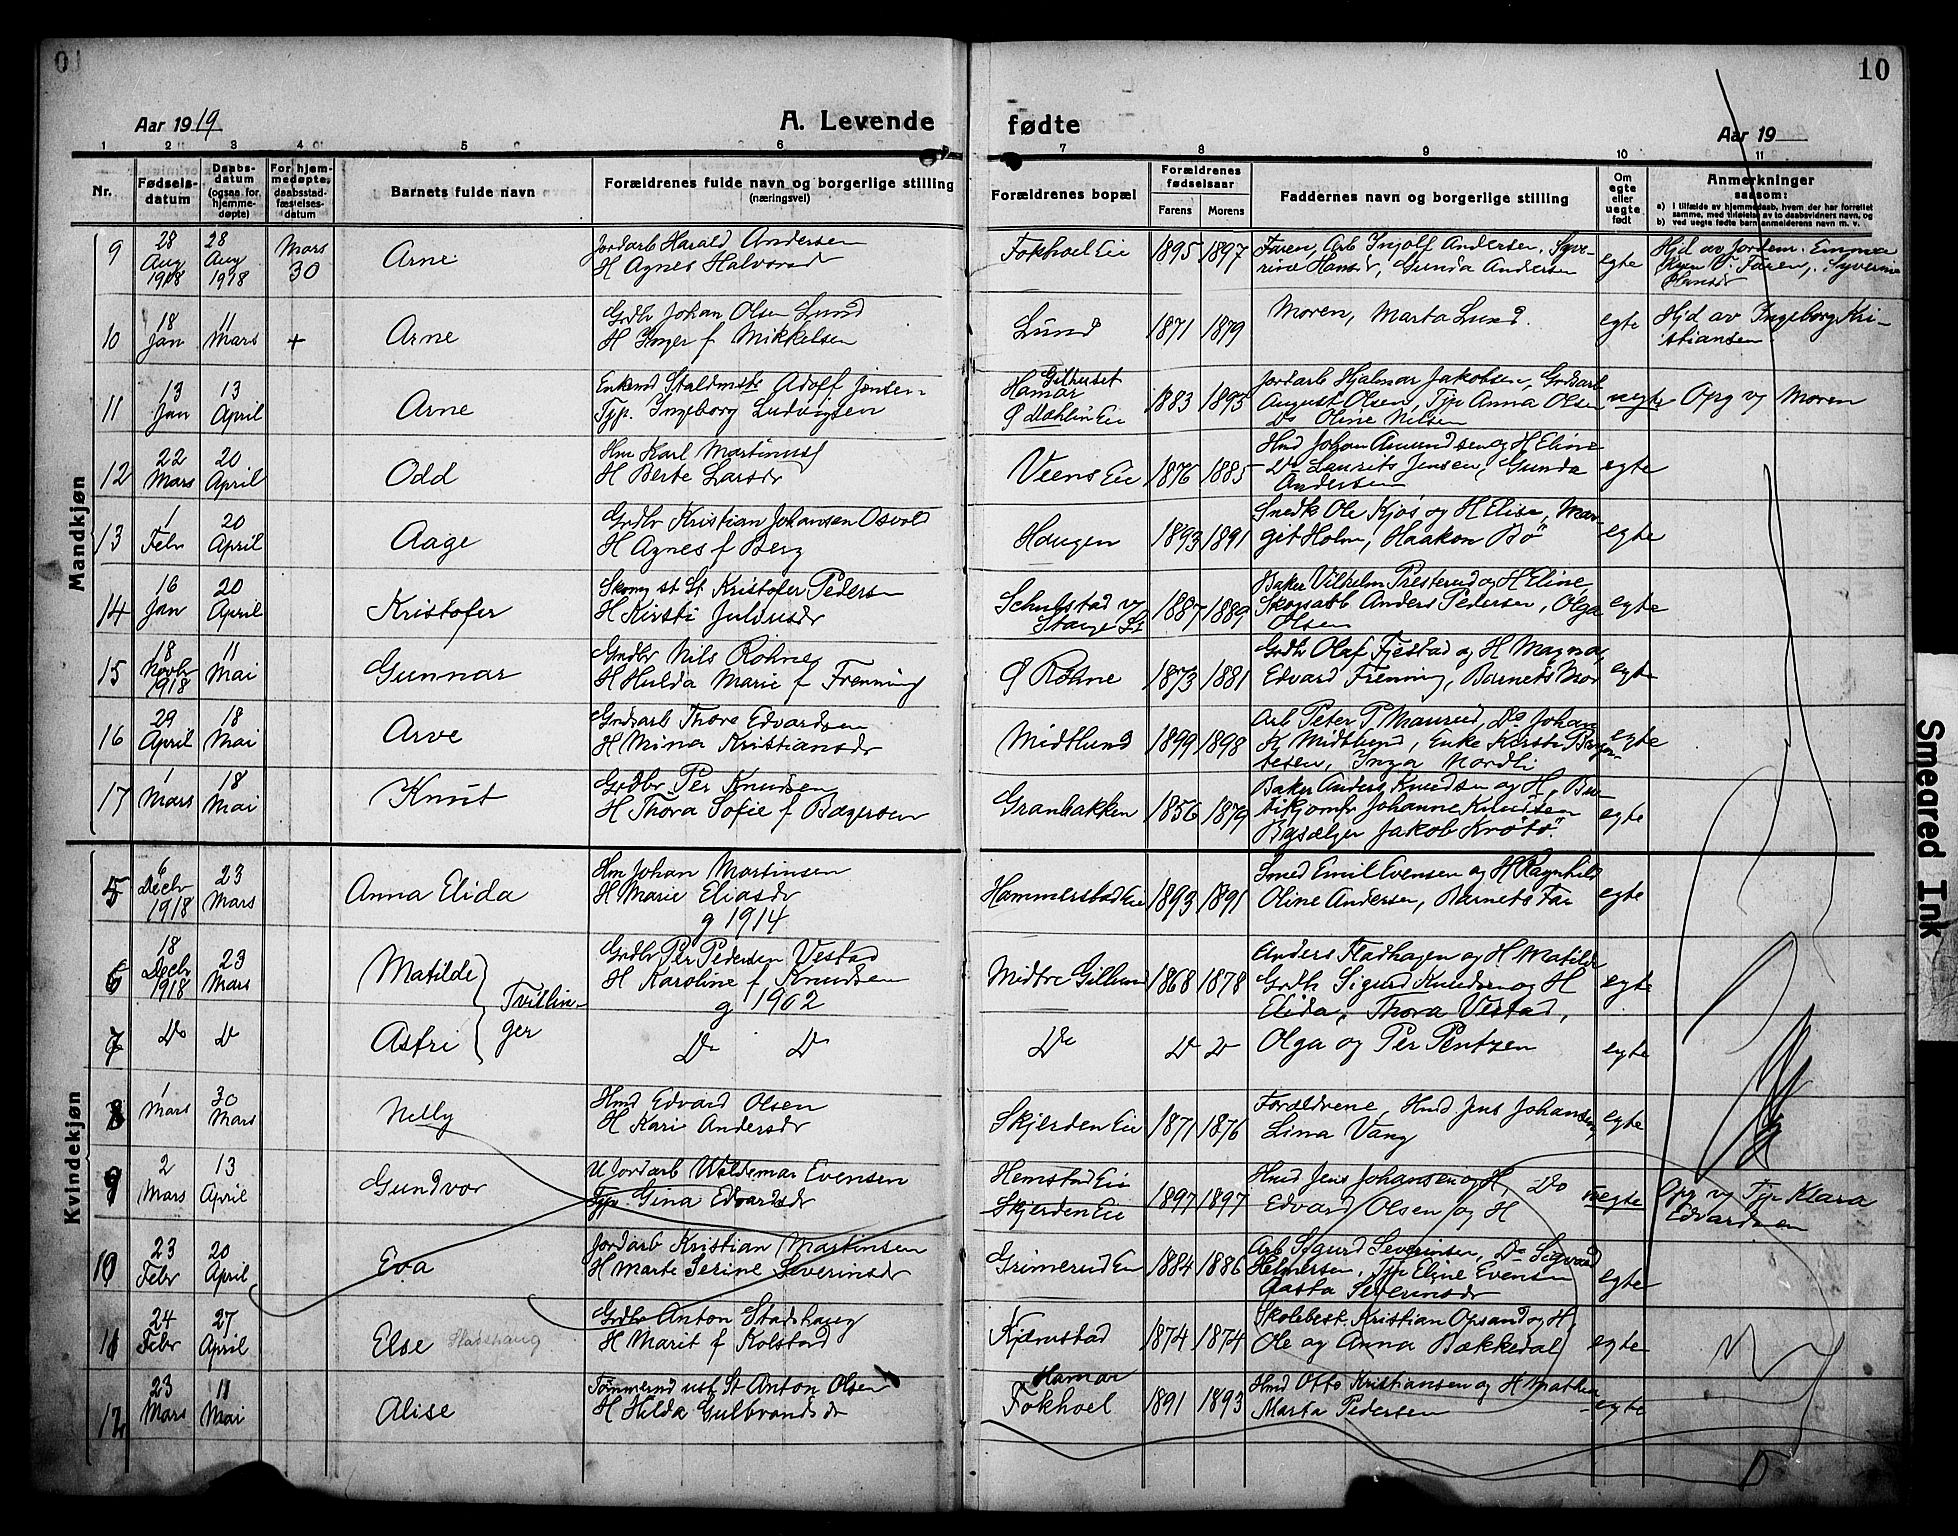 10
Aar 1919
A. Levende fødte
Aar 19
1 2 3 4 5 6 7 8 9 10 11
Nr.
Fødsels-
datum
Daabs-
datum
(ogsaa for
hjemme-
døpte)
For hjem-
medøpte,
daabsstad-
fæstelses-
datum
Barnets fulde navn
Forældrenes fulde navn og borgerlige stilling
(næringsvei)
Forældrenes bopæl
Forældrenes
fødselsaar
Farens Morens
Faddernes navn og borgerlige stilling
Om
egte
eller
uegte
født
Anmerkninger
saasom:
a) I tilfælde av hjemmedaab, hvem der har forrettet
samme, med tilføielse av to daabsvidners navn, og
b) ved uegte fødte barn anmelderens navn m. v.
Mandkjøn
9
28 Aug 1918
28 Aug 1918
Mars 30
Arne
Jordarb Harald Andersen
H Agnes Halvorsdr
Fokhoel Eie
1895 1897
Faren, Arb Ingolf Andersen, Syve-
rine Hansdr, Gunda Andersen
egte
Hjd av Jordem. Emma
V. Faren, Syverine
Hansdr
10
18 Jan
11 Mars
+
Arne
Grdbr Johan Olsen Lund
H Inger f Mikkelsen
Lund
1871 1879
Moren, Marta Lund.
egte
Hjd av Ingeborg Kri-
stiansen
11
13 Jan
13 April
Arne
Enkemd Staldmstr Adolf Jensen
Typ. Ingeborg Ludvigsen
Gilhuset
Hamar
Ø Mæhlin Eie
1883 1893
Jordarb Hjalmar Jakobsen, Grdsarb
August Olsen, Typ Anna Olsen
Do Oline Nilsen
uegte
Opg v Moren
12
22 Mars
20 April
Odd
Hm Karl Martinus
H Berte Larsdr
Veens Eie
1876 1885
Hmd Johan Amundsen og H Eline
Do Laurits Jensen, Gunda
Andersen
egte
13
1 Febr
20 April
Aage
Grdbr Kristian Johansen Osvold
H Agnes f Berg
Haugen
1893 1891
Snedk Ole Kjos og H Elise, Mar-
git Holm, Haakon Bö
egte
14
16 Jan
20 April
Kristofer
Skom st St Kristofer Pedersen
H Kirsti Juliusdr
Schulstad v
Stange St
1887 1889
Baker Vilhelm Presterud og H Eline,
Skogsarb Anders Pedersen, Olga
Olsen
egte
15
18 Novbr 1918
11 Mai
Gunnar
Grdbr Nils Rohne
H Hulda Marie f Frenning
Ø Rohne
1873 1881
Grdbr Olaf Fjestad og H Magna,
Edvard Frenning, Barnets Mor
egte
16
29 April
18 Mai
Arve
Grdsarb Thore Edvardsen
H Mina Kristiansdr
Midtlund
1899 1898
Arb Peter P. Maurud, Do Johan
K Midtlund, Enke Kersti
Inga Nordli
egte
17
1 Mars
18 Mai
Knut
Grdbr Per Knudsen
H Thora Sofie f Bagersen
Granbakken
1856 1879
Baker Anders Knudsen og H, Bu-
tikjomfr Johanne Knudsen
Bysælger Jakob Krötö.
egte
Kvindekjøn
5
6 Decbr 1918
23 Mars
Anna Elida
Hm Johan Martinsen
H Marie Eliasdr
g 1914
Hammerstad Eie
1893 1891
Smed Emil Evensen og H Ragnhild
Oline Andersen, Barnets Far
egte
6
18 Decbr 1918
23 Mars
Matilde
Tvillin-
ger
Grdbr Per Pedersen Vestad
H Karoline f Knudsen
g 1902
Midtre Gillund
1868 1878
Anders Fladhagen og H Matilde
Grdb Sigurd Knudsen og H
Elida, Thora Vestad,
egte
7
Do
Do
Astri
Do Do
Do
Do Do
Olga og Per Pentzen
egte
8
1 Mars
30 Mars
Nelly
Hmd Edvard Olsen
H Kari Andersdr
Skjerden Eie
1871 1876
Forældrene, Hmd Jens Johansen,
Lina Vang
egte
9
2 Mars
13 April
Gundvor
U Jordarb Waldemar Evensen
Typ. Gina Edvardsdr
Hemstad Eie
Skjerden Eie
1897 1897
Hmd Jens Johansen og H, Do
Edvard Olsen og H
uegte
Opg v Typ Klara
Edvardsen
10
23 Febr
20 April
Eva
Jordarb Kristian Martinsen
H Marte Serine Severinsdr
Grimerud Eie
1884 1886
Arb Sigurd Severinsen, Do Sigvard
Helmersen, Typ Eline Evensen
Aasta Severinsdr
egte
11
24 Febr
27 April
Else Stadshaug
Grdbr Anton Stadshaug
H Marit f Kolstad
Kjemstad
1874 1874
Skolebest. Kristian Opsand og H,
Ole og Anna Bækkedal
egte
12
23 Mars
11 Mai
Alise
Tömmermd ust St Anton Olsen
H Hilda Gulbrandsdr
Hamar
Fokhoel
1891 1893
Hmd Otto Kristiansen og H Mathea
Marta Pedersen
egte
Smeared Ink